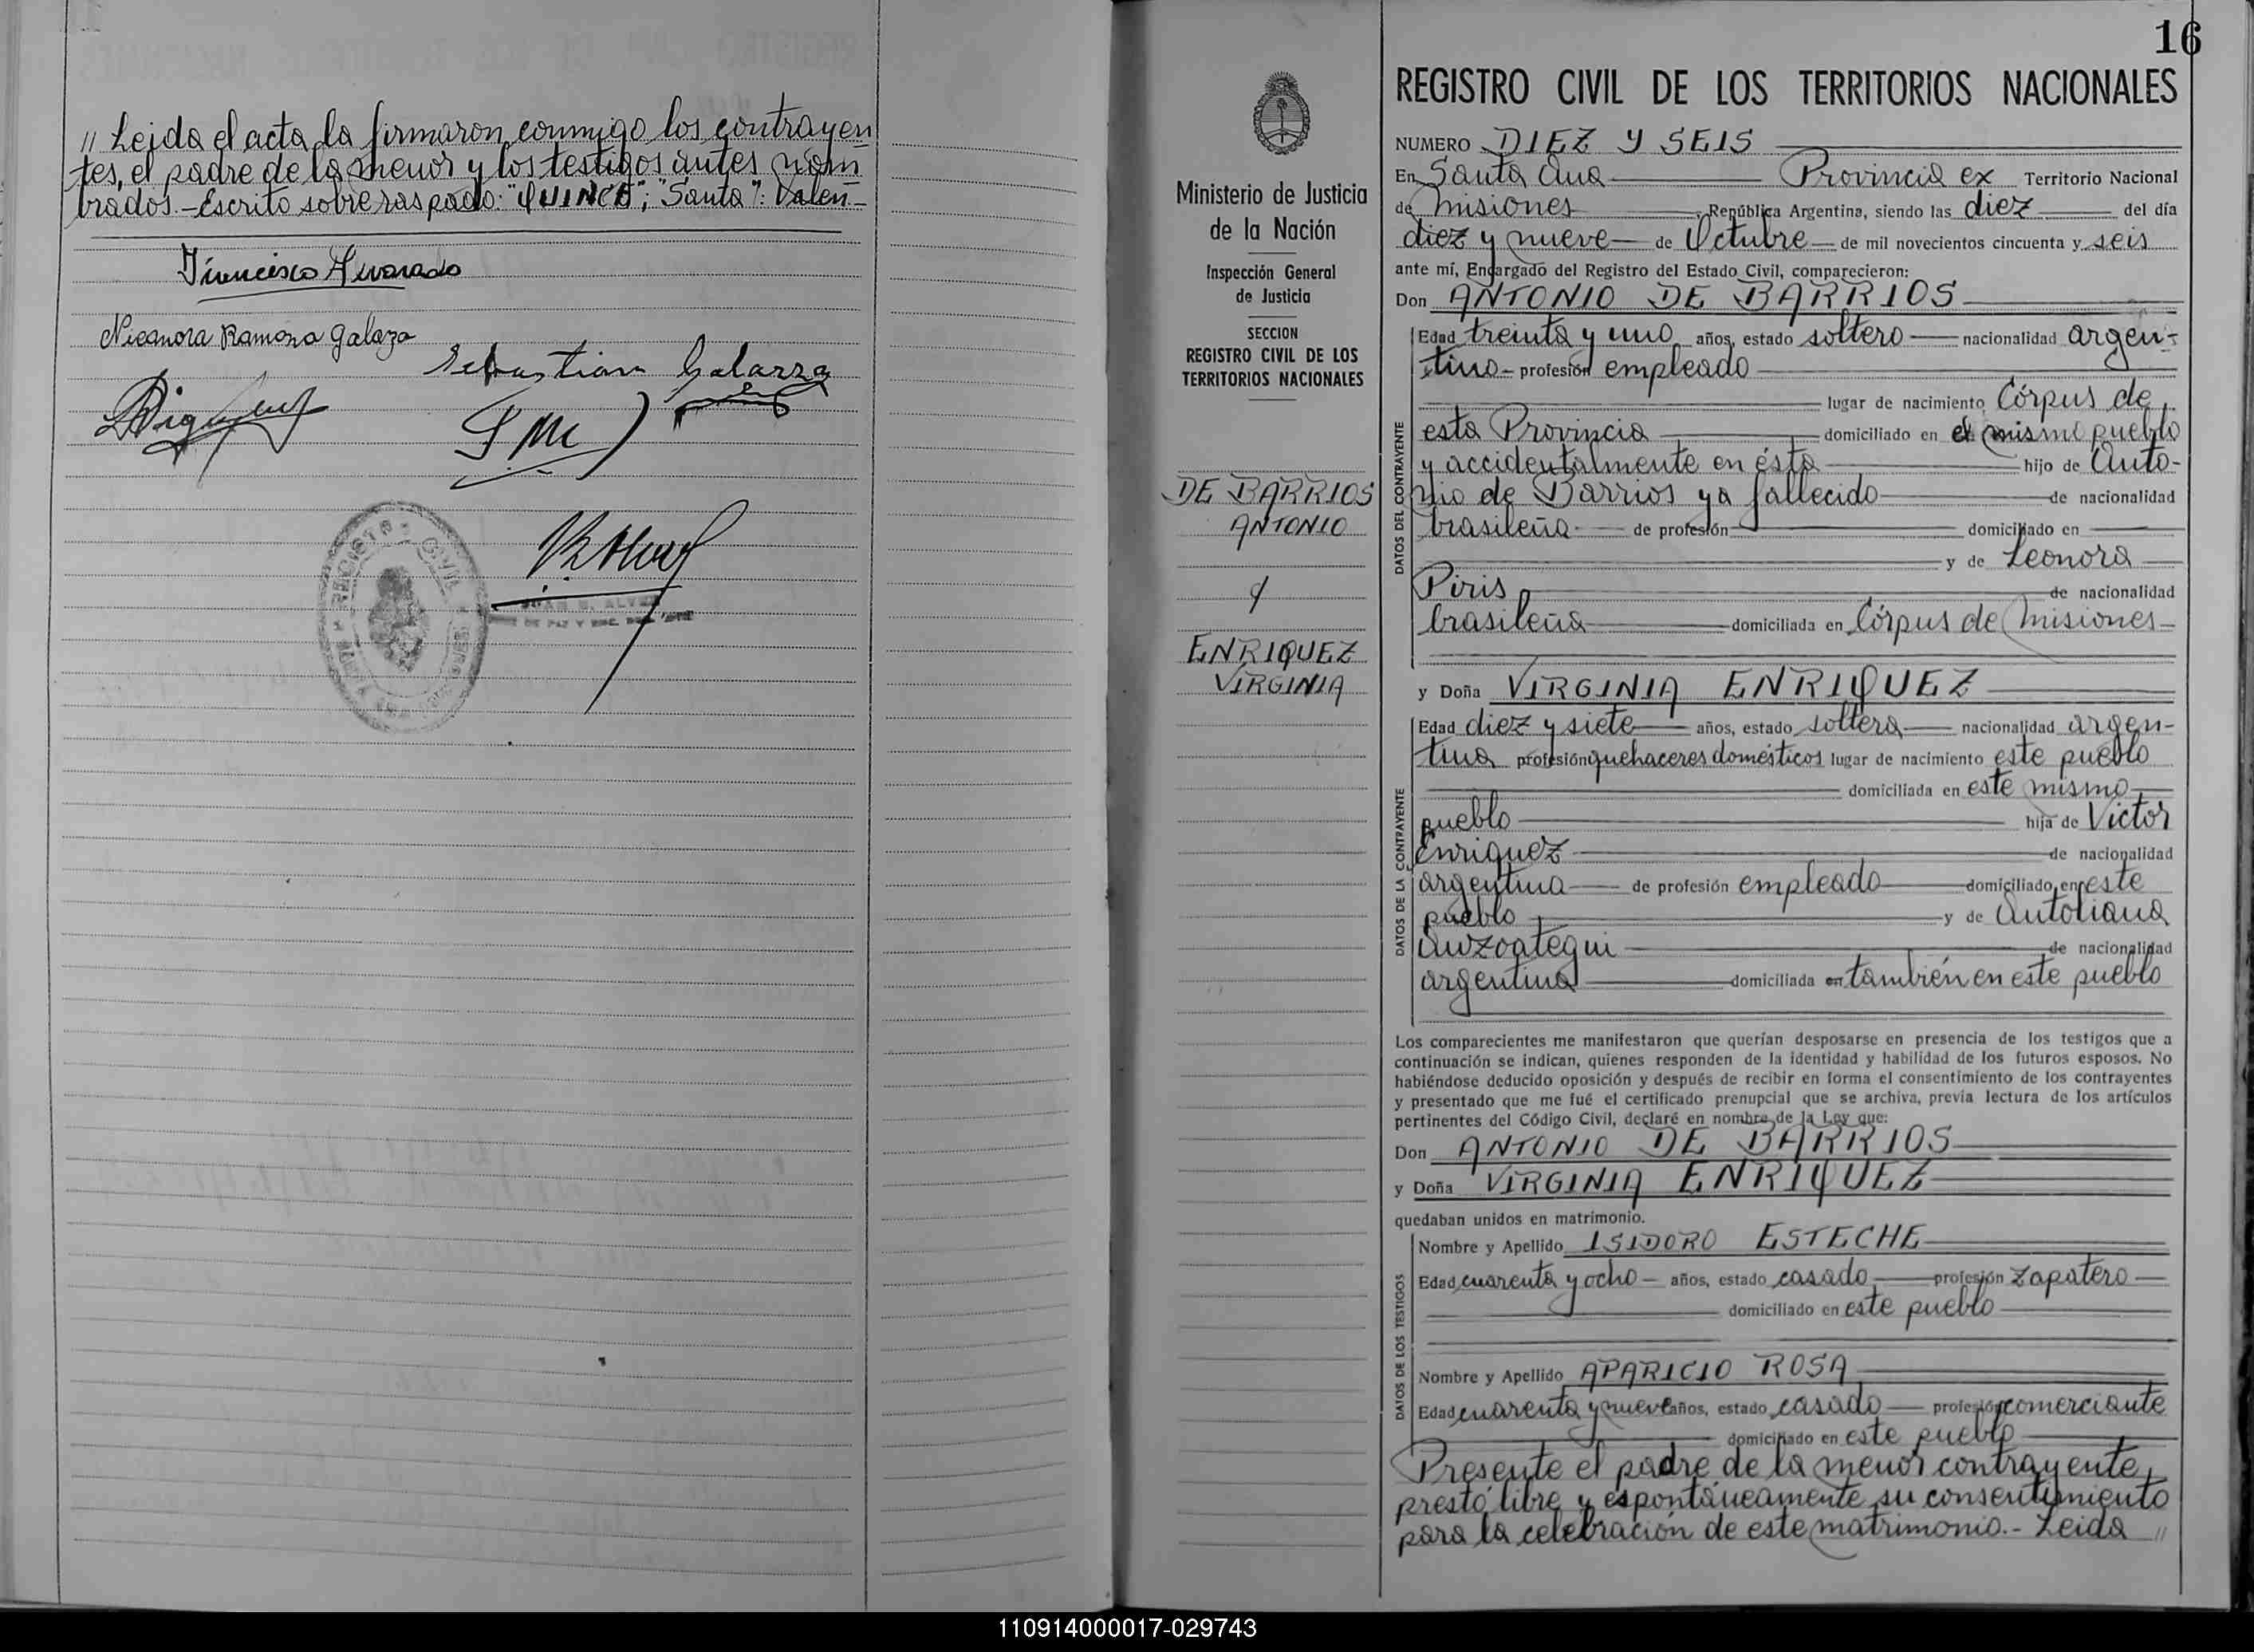 " Leida el acta la firmaron conmigo los contrayen
tes, el padre de la menor y los testigos antes nom
brados.- Escrito sobre raspado: "QUINCE"; "Santa": Valen-
Francisco Alvarado
Nicanora Ramona Galaza
Sebastian Galarza
REGISTRO CIVIL
16
REGISTRO CIVIL DE LOS TERRITORIOS NACIONALES
Ministerio de Justicia
de la Nación
Inspección General
de Justicia
SECCION
REGISTRO CIVIL DE LOS
TERRITORIOS NACIONALES
DE BARRIOS
ANTONIO
y
ENRIQUEZ
VIRGINIA
NUMERO DIEZ Y SEIS
En Santa Ana Provincia ex Territorio Nacional
de Misiones, República Argentina, siendo las diez del día
diez y nueve de Octubre de mil novecientos cincuenta y seis
ante mí, Encargado del Registro del Estado Civil, comparecieron:
Don ANTONIO DE BARRIOS
DATOS DEL CONTRAYENTE
Edad treinta y uno años, estado soltero nacionalidad argen-
tino- profesión empleado
lugar de nacimiento Córpus de
esta Provincia domiciliado en el mismo pueblo
y accidentalmente en ésta hijo de Anto-
nio de Barrios ya fallecido de nacionalidad
brasileña de profesión domiciliado en
y de Leonora
Piris de nacionalidad
brasileña domiciliada en Córpus de Misiones
y Doña VIRGINIA ENRIQUEZ
DATOS DE LA CONTRAYENTE
Edad diez y siete años, estado soltera nacionalidad argen-
tina profesión quehaceres domésticos lugar de nacimiento este pueblo
domiciliada en este mismo
pueblo hija de Victor
Enriquez de nacionalidad
argentina de profesión empleado domiciliado en este
pueblo y de Antoliana
Auzoategui de nacionalidad
argentina domiciliada en también en este pueblo
Los comparecientes me manifestaron que querían desposarse en presencia de los testigos que a
continuación se indican, quienes responden de la identidad y habilidad de los futuros esposos. No
habiéndose deducido oposición y después de recibir en forma el consentimiento de los contrayentes
y presentado que me fué el certificado prenupcial que se archiva, previa lectura de los artículos
pertinentes del Código Civil, declaré en nombre de la Ley que:
Don ANTONIO DE BARRIOS
y Doña VIRGINIA ENRIQUEZ
quedaban unidos en matrimonio.
DATOS DE LOS TESTIGOS
Nombre y Apellido ISIDORO ESTECHE
Edad cuarenta y ocho años, estado casado profesión zapatero
domiciliado en este pueblo
Nombre y Apellido APARICIO ROSA
Edad cuarenta y nueve años, estado casado profesión comerciante
domiciliado en este pueblo
Presente el padre de la menor contrayente,
prestó libre y espontáneamente su consentimiento
para la celebración de este matrimonio.- Leida "
110914000017-029743